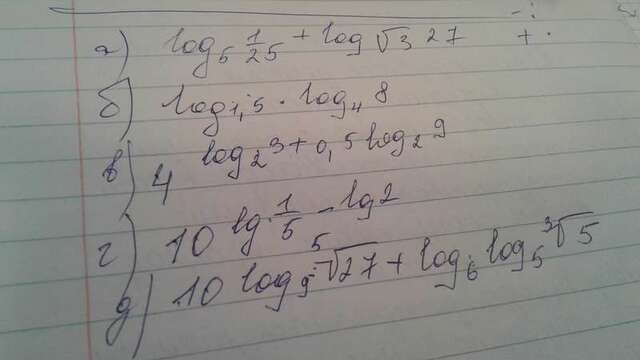 а) log₅ 1/25 + log√3 27 + .
б) log₁,₅ · log₄ 8
в) 4^(log₂3 + 0,5log₂9)
г) 10^(lg 1/5 - lg2)
д) 10 log₉ ⁵√27 + log₆ log₅ ³√5